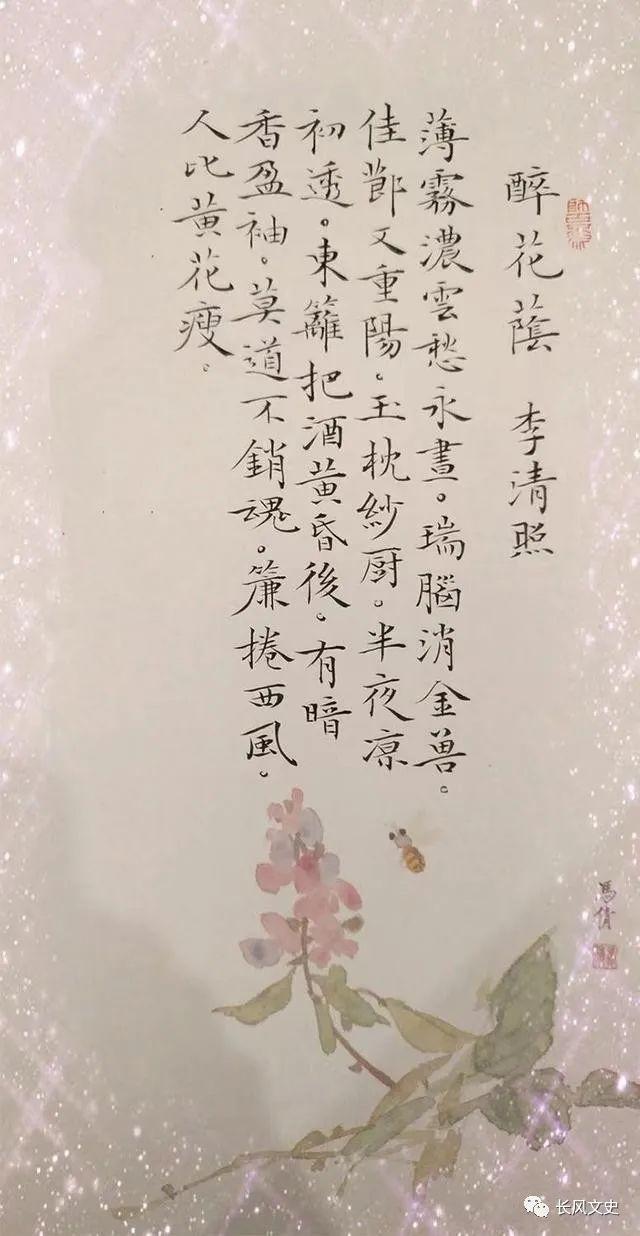 醉花蔭 李清照
薄霧濃雲愁永晝。瑞腦消金兽。
佳莭又重陽。玉枕紗厨。半夜凉
初透。東籬把酒黃昏後。有暗
香盈袖。莫道不銷魂。簾捲西風。
人比黃花瘦。
馬倩
长风文史